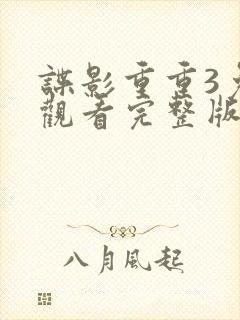 諜影重重3
觀看完整版
八月風起